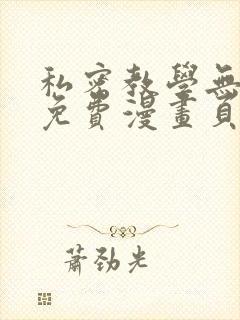 私密教學無
免費漫畫頁
蕭勁光